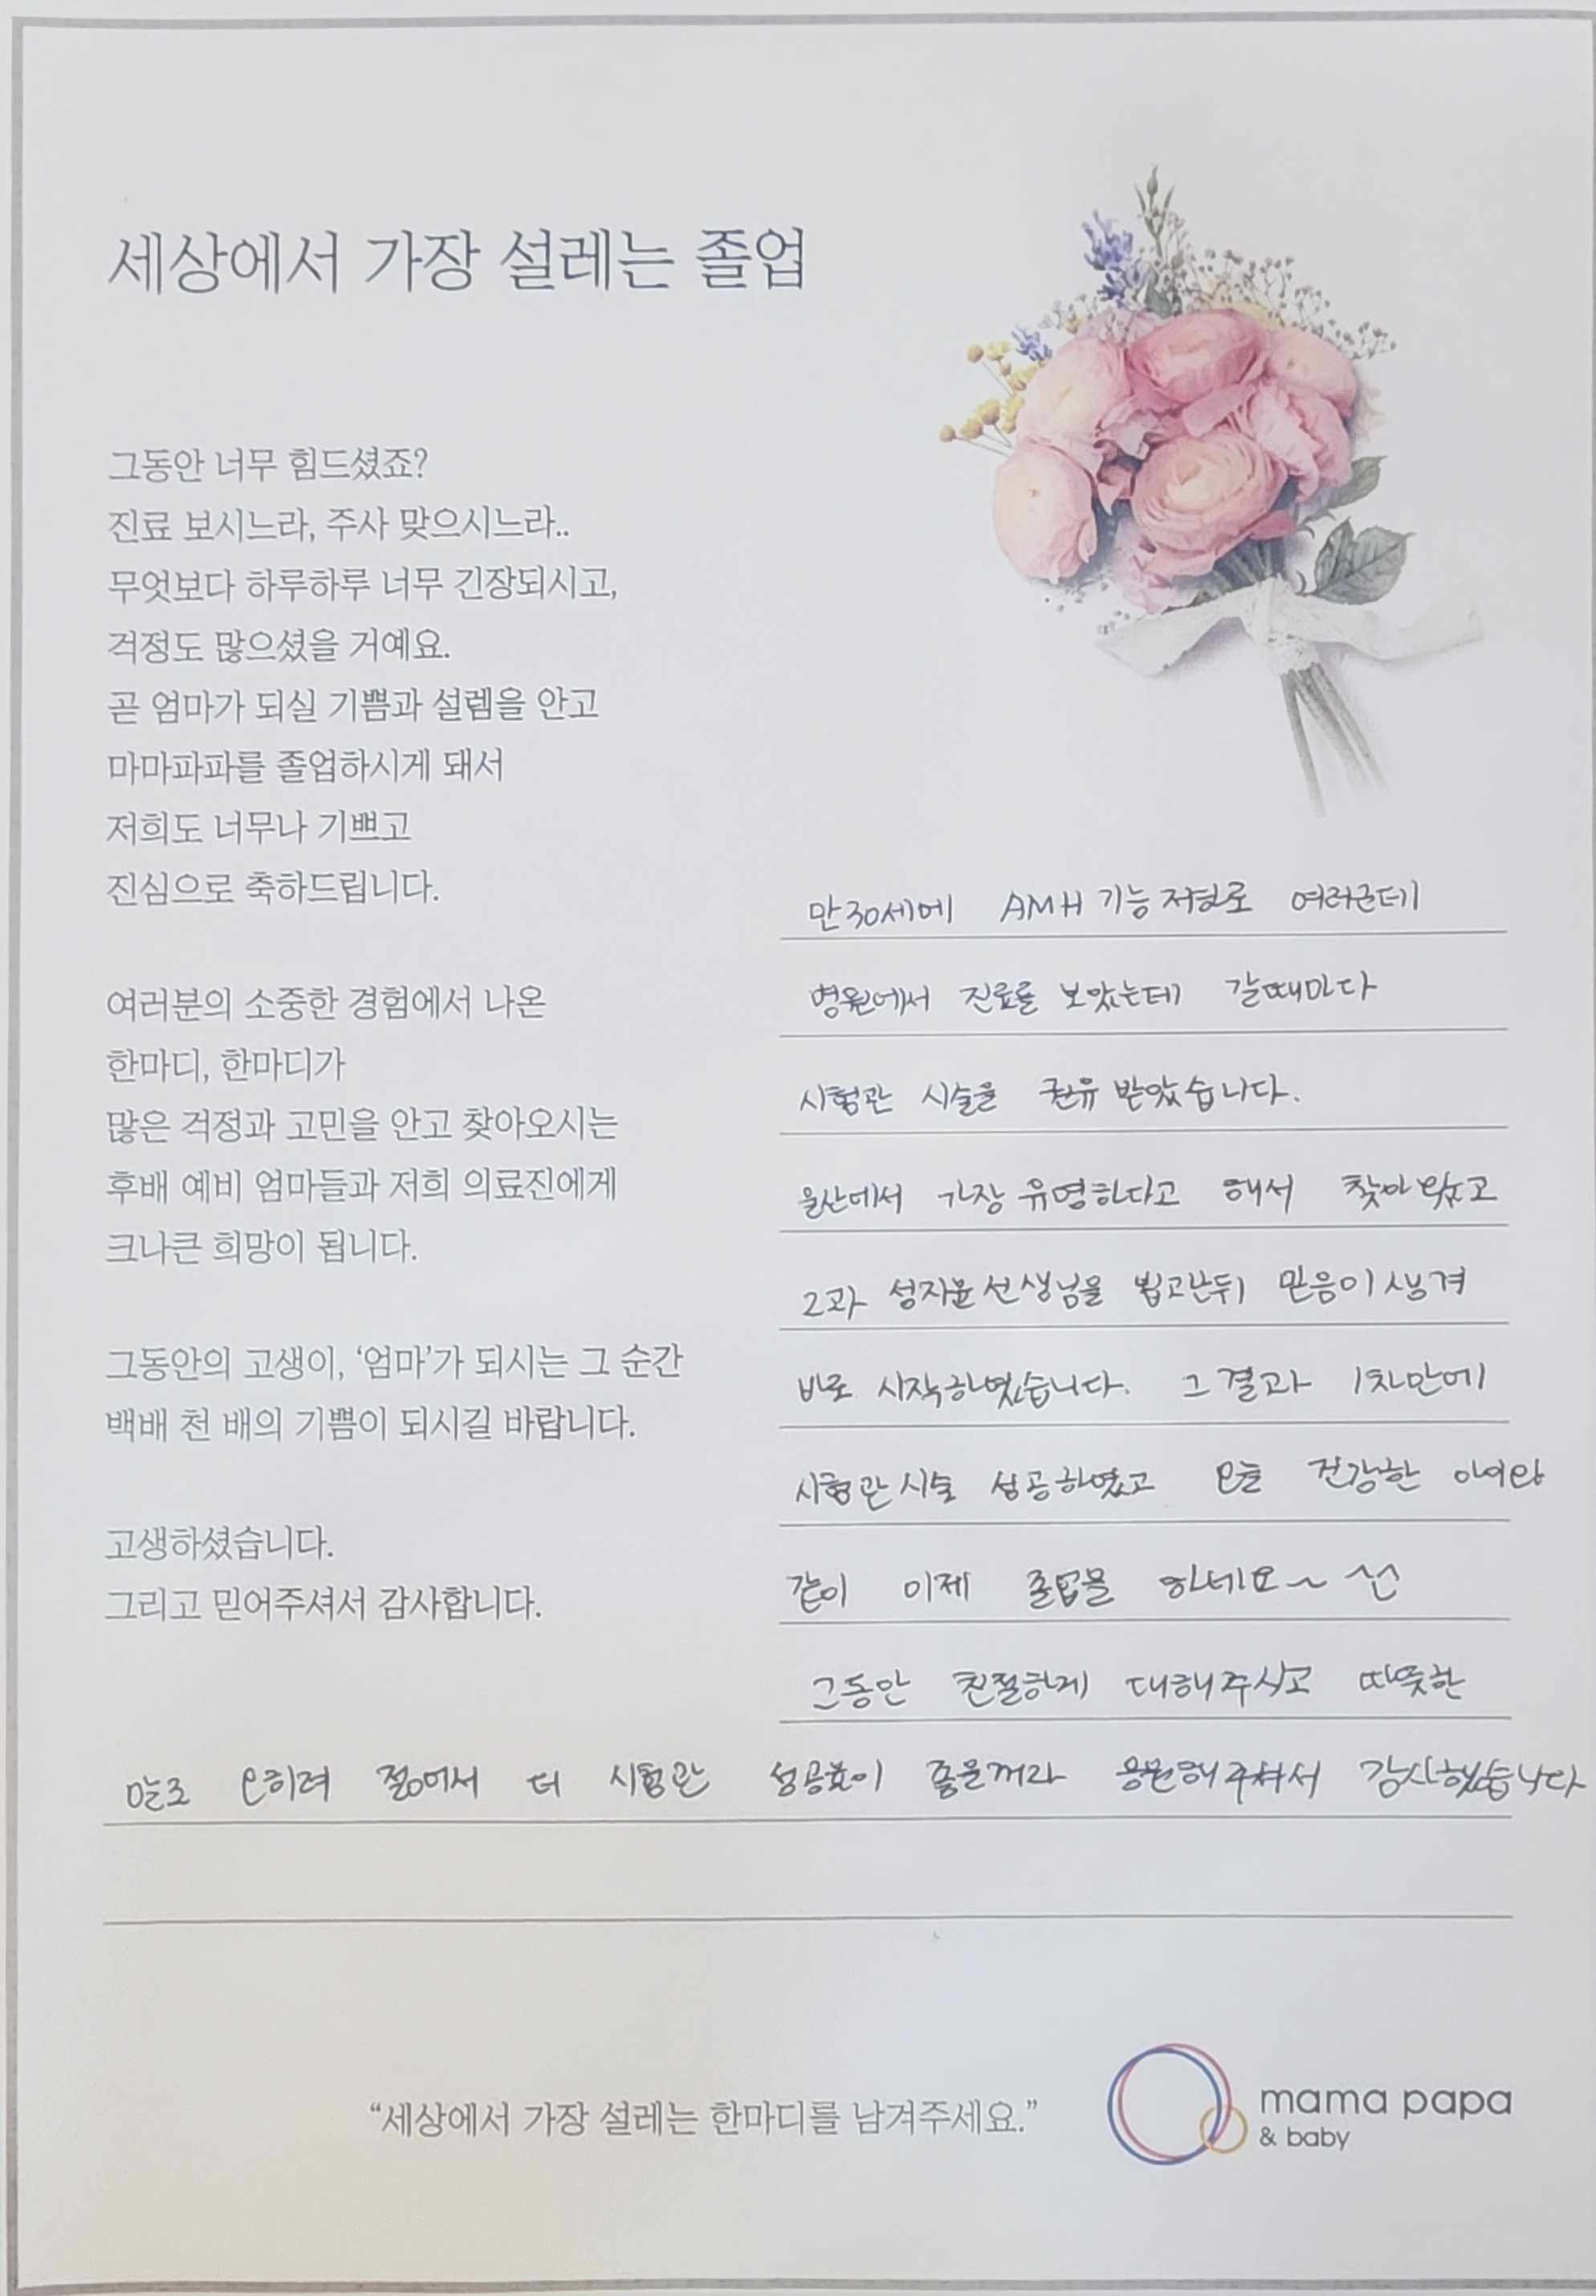 세상에서 가장 설레는 졸업
그동안 너무 힘드셨죠?
진료 보시느라, 주사 맞으시느라..
무엇보다 하루하루 너무 긴장되시고,
걱정도 많으셨을 거예요.
곧 엄마가 되실 기쁨과 설렘을 안고
마마파파를 졸업하시게 돼서
저희도 너무나 기쁘고
진심으로 축하드립니다.
여러분의 소중한 경험에서 나온
한마디, 한마디가
많은 걱정과 고민을 안고 찾아오시는
후배 예비 엄마들과 저희 의료진에게
크나큰 희망이 됩니다.
그동안의 고생이, ‘엄마’가 되시는 그 순간
백배 천 배의 기쁨이 되시길 바랍니다.
고생하셨습니다.
그리고 믿어주셔서 감사합니다.
만30세에 AMH 기능저하로 여러군데
병원에서 진료를 보았는데 갈때마다
시험관 시술을 권유 받았습니다.
울산에서 가장 유명하다고 해서 찾아왔고
2과 성자윤선생님을 뵙고난뒤 믿음이생겨
바로 시작하였습니다. 그결과 1차만에
시험관시술 성공하였고 오늘 건강한 아이와
같이 이제 졸업을 하네요~ ^^
그동안 친절하게 대해주시고 따뜻한
말로 오히려 젊어서 더 시험관 성공율이 좋을꺼라 응원해주셔서 감사했습니다
“세상에서 가장 설레는 한마디를 남겨주세요.”
mama papa
& baby